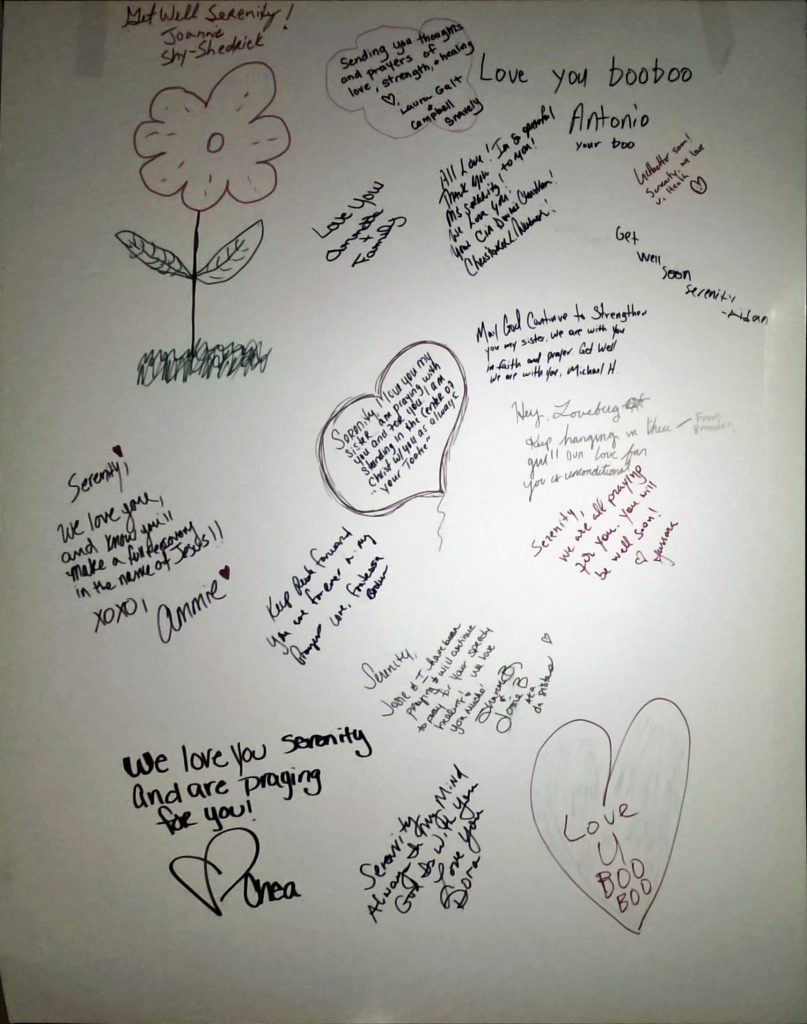 Get Well Serenity!
Joannie
Shy-Shedrick
Sending you thoughts
and prayers of
love, strength, & healing
Laura Galt
&
Campbell
Gravely
Love you booboo
Antonio
your boo
All Love! I'm so grateful
Thank you to you!
Ms Serenity!
We Love you!
Love You
Annette
+
Family
Get better soon!
Serenity, we love
u.
Get
Well
Soon
Serenity
-Aidan
May God Continue to Strengthen
you my sister, we are with you
in faith and prayer Get Well
we are with you, Michael H.
Serenity, I love you my
sister. I am praying with
you and for you. I am
standing in the center of
Christ w/ you as always
your
Hey, Lovebug
Keep hanging in there
girl!! Our love for
you is unconditional
From
Brandon
Serenity,
we are all praying
for you. You will
be well soon!
Serenity,
We love you,
and know you'll
make a full recovery
in the name of Jesus!!
XOXO,
Annie
Keep forward
you are forever in my
Prayers Love,
Serenity,
& I have been
praying & will continue
to pray for your speedy
healing. We love
you
We love you Serenity
And are praying
for you!
Serenity
Always on my Mind
God Is With You
Love You
Dora
Love
U
BOO
BOO